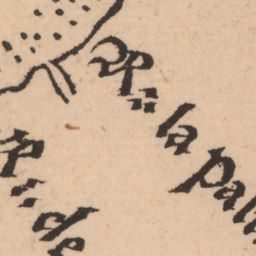 R: la pal
p: de